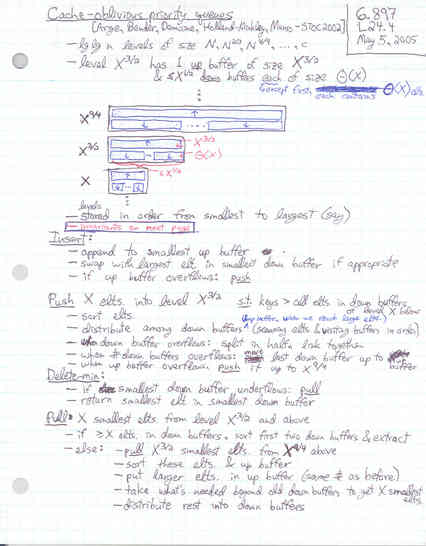 Cache-oblivious priority queues
6.897
L24.4
May 5, 2005
[Arge, Bender, Demaine, Holland-Minkley, Munro - STOC 2002]
- lg lg n levels of size N, N^2/3, N^4/9, ..., c
- level X^3/2 has 1 up buffer of size X^3/2
& ≤ X^1/2 down buffers each of size Θ(X)
except first, each contains Θ(X) elts.
X^9/4
X^3/2
← X^3/2
← Θ(X)
≤ X^1/2
X
levels
- stored in order from smallest to largest (say)
- invariants on next page
Insert:
- append to smallest up buffer
- swap with largest elt. in smallest down buffer if appropriate
- if up buffer overflows: push
Push X elts. into level X^3/2 s.t. keys > all elts in down buffers
at level X below
- sort elts.
- distribute among down buffers (scanning elts & visiting buffers in order)
- down buffer overflows: split in half & link together
- when # down buffers overflows: move last down buffer up to buffer
- when up buffer overflows, push it up to X^9/4
Delete-min:
- if smallest down buffer underflows: pull
- return smallest elt in smallest down buffer
Pull: X smallest elts from level X^3/2 and above
- if ≥X elts. in down buffers, sort first two down buffers & extract
- else: - pull X^3/2 smallest elts. from X^9/4 above
- sort these elts. & up buffer
- put larger elts. in up buffer (same # as before)
- take what's needed beyond old down buffers to get X smallest elts.
- distribute rest into down buffers